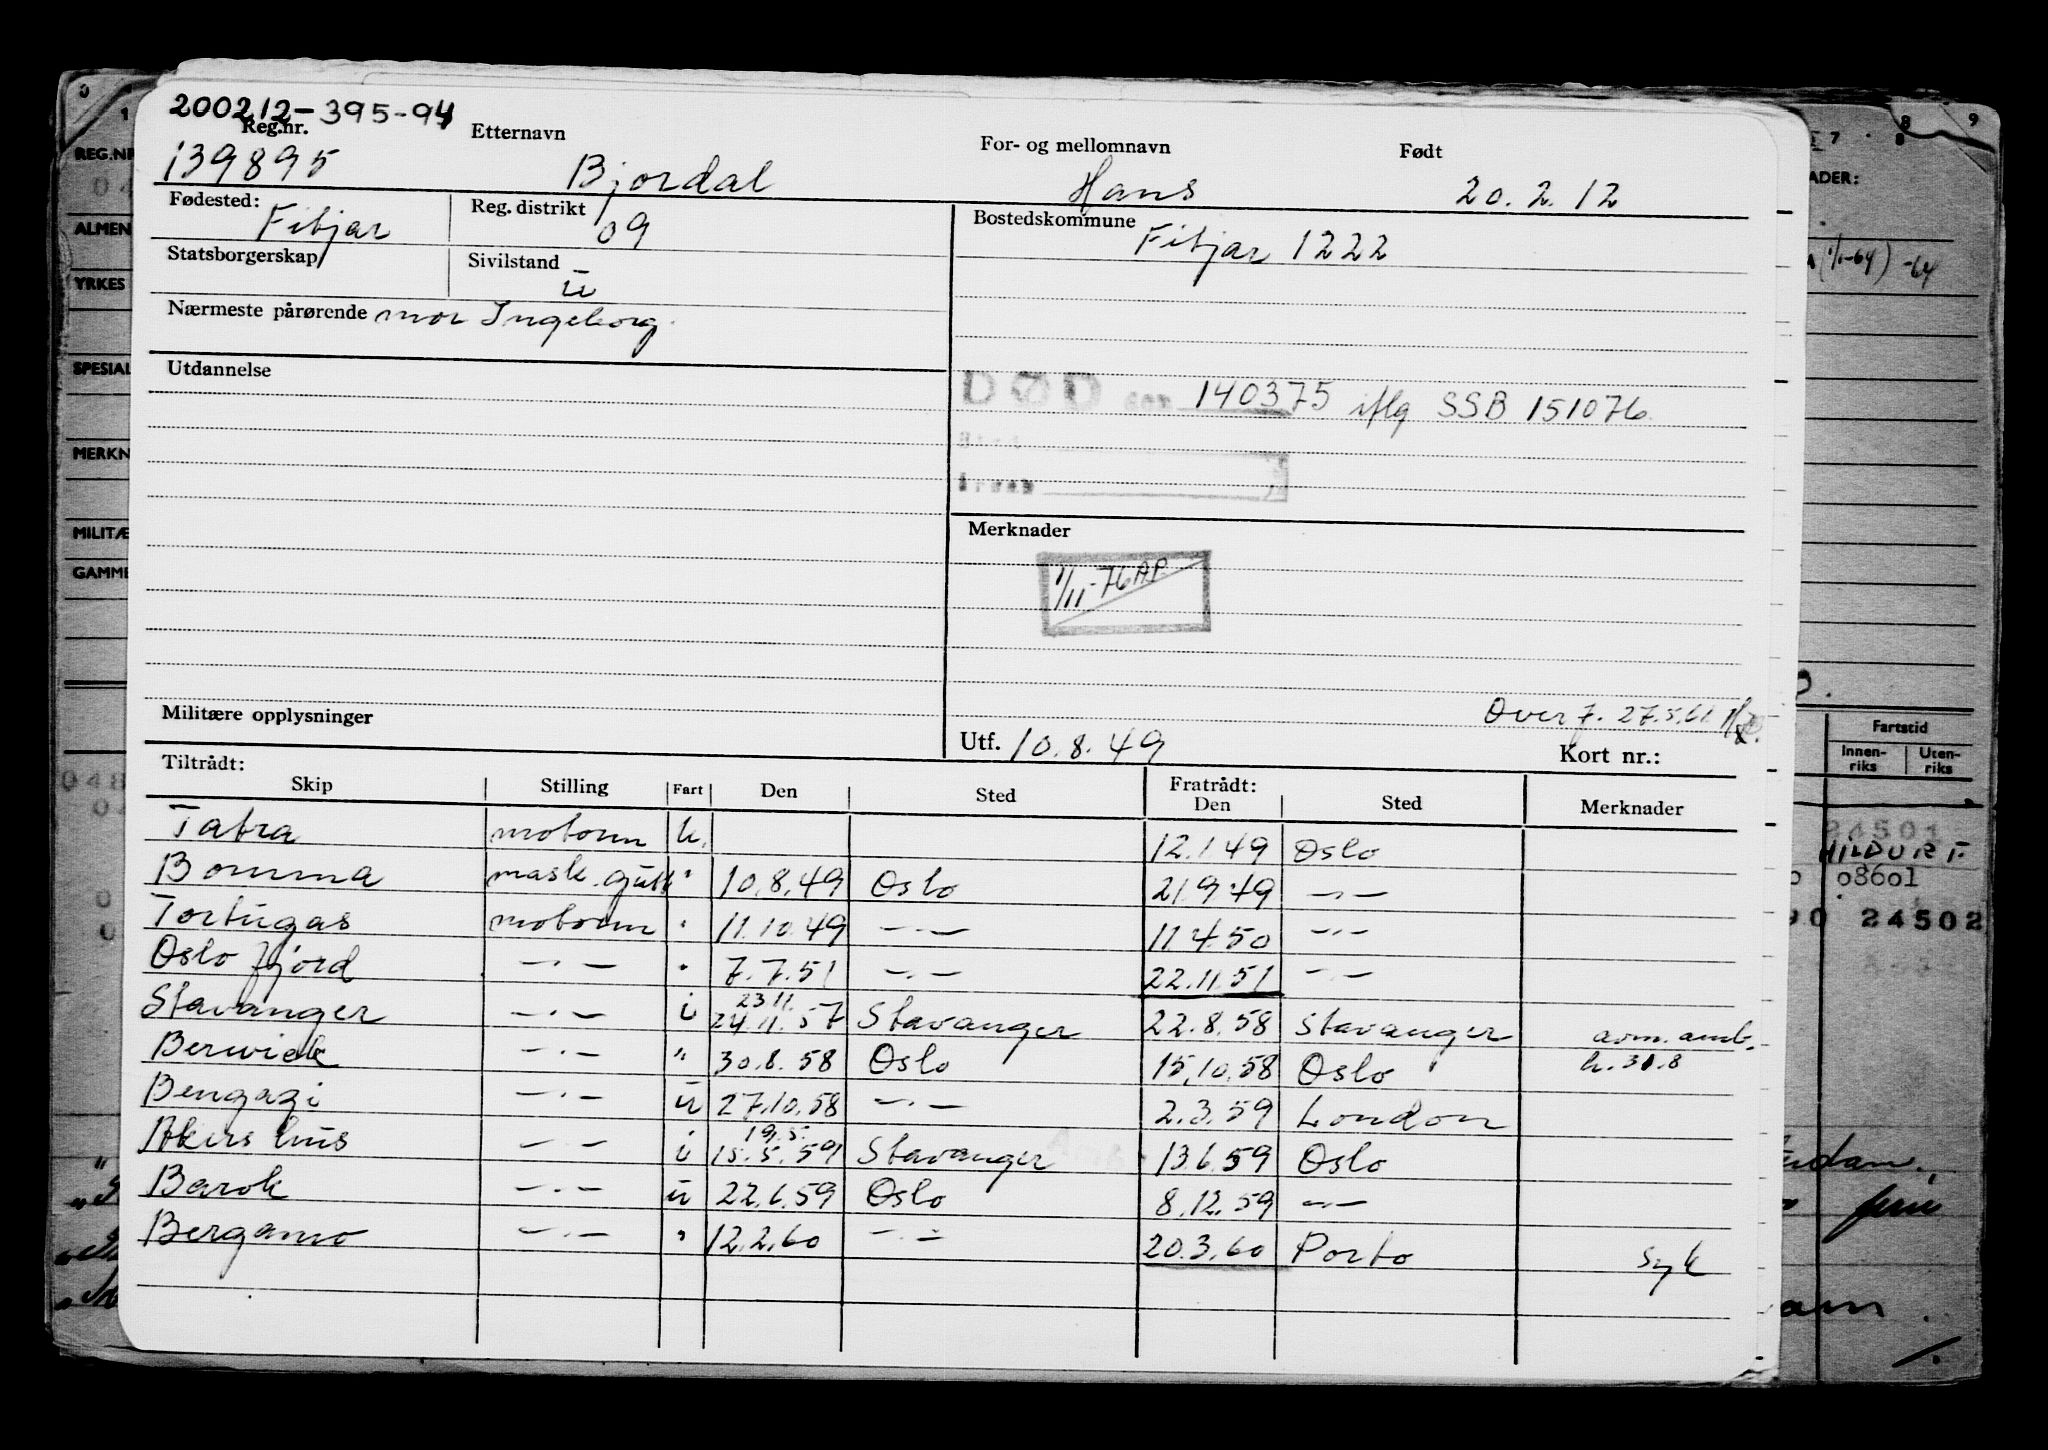 200212-395-94
Reg.nr. Etternavn For- og mellomnavn Født
139895 Bjordal Hans 20.2.12
Fødested: Fitjar Reg. distrikt 09 Bostedskommune Fitjar 1222
Statsborgerskap Sivilstand ū
Nærmeste pårørende mor Ingeborg.
Utdannelse
DØD den 140375 iflg SSB 151076.
Sted
Årsak
Merknader
1/11-76 AP
Militære opplysninger
Overf. 27.5.61
Utf. 10.8.49 Kort nr.:
Tiltrådt: Fratrådt:
Skip Stilling Fart Den Sted Den Sted Merknader
Tatra motorm u. 12.1.49 Oslo
Bomma mask.gutt " 10.8.49 Oslo 21.9.49 —"—
Tortugas motorm " 11.10.49 —"— 11.4.50 —"—
Oslofjord —"— " 7.7.51 —"— 22.11.51 —"—
23.11.
Stavanger —"— i 24.11.57 Stavanger 22.8.58 Stavanger avm. amb.
Berwick —"— " 30.8.58 Oslo 15.10.58 Oslo h. 31.8
Bengazi —"— ū 27.10.58 —"— 2.3.59 London
19.5.
Akershus —"— i 15.5.59 Stavanger 13.6.59 Oslo
Barok —"— ū 22.6.59 Oslo 8.12.59 —"—
Bergamo —"— " 12.2.60 —"— 20.3.60 Porto syk
REG.NR
ALMEN
YRKES
SPESIAL
MERKN
MILITÆ
GAMME
ADER:
(1/1-64) -64
Fartstid
Innen-riks Uten-riks
24501
HILDUR F.
08601
90 24502
ferie